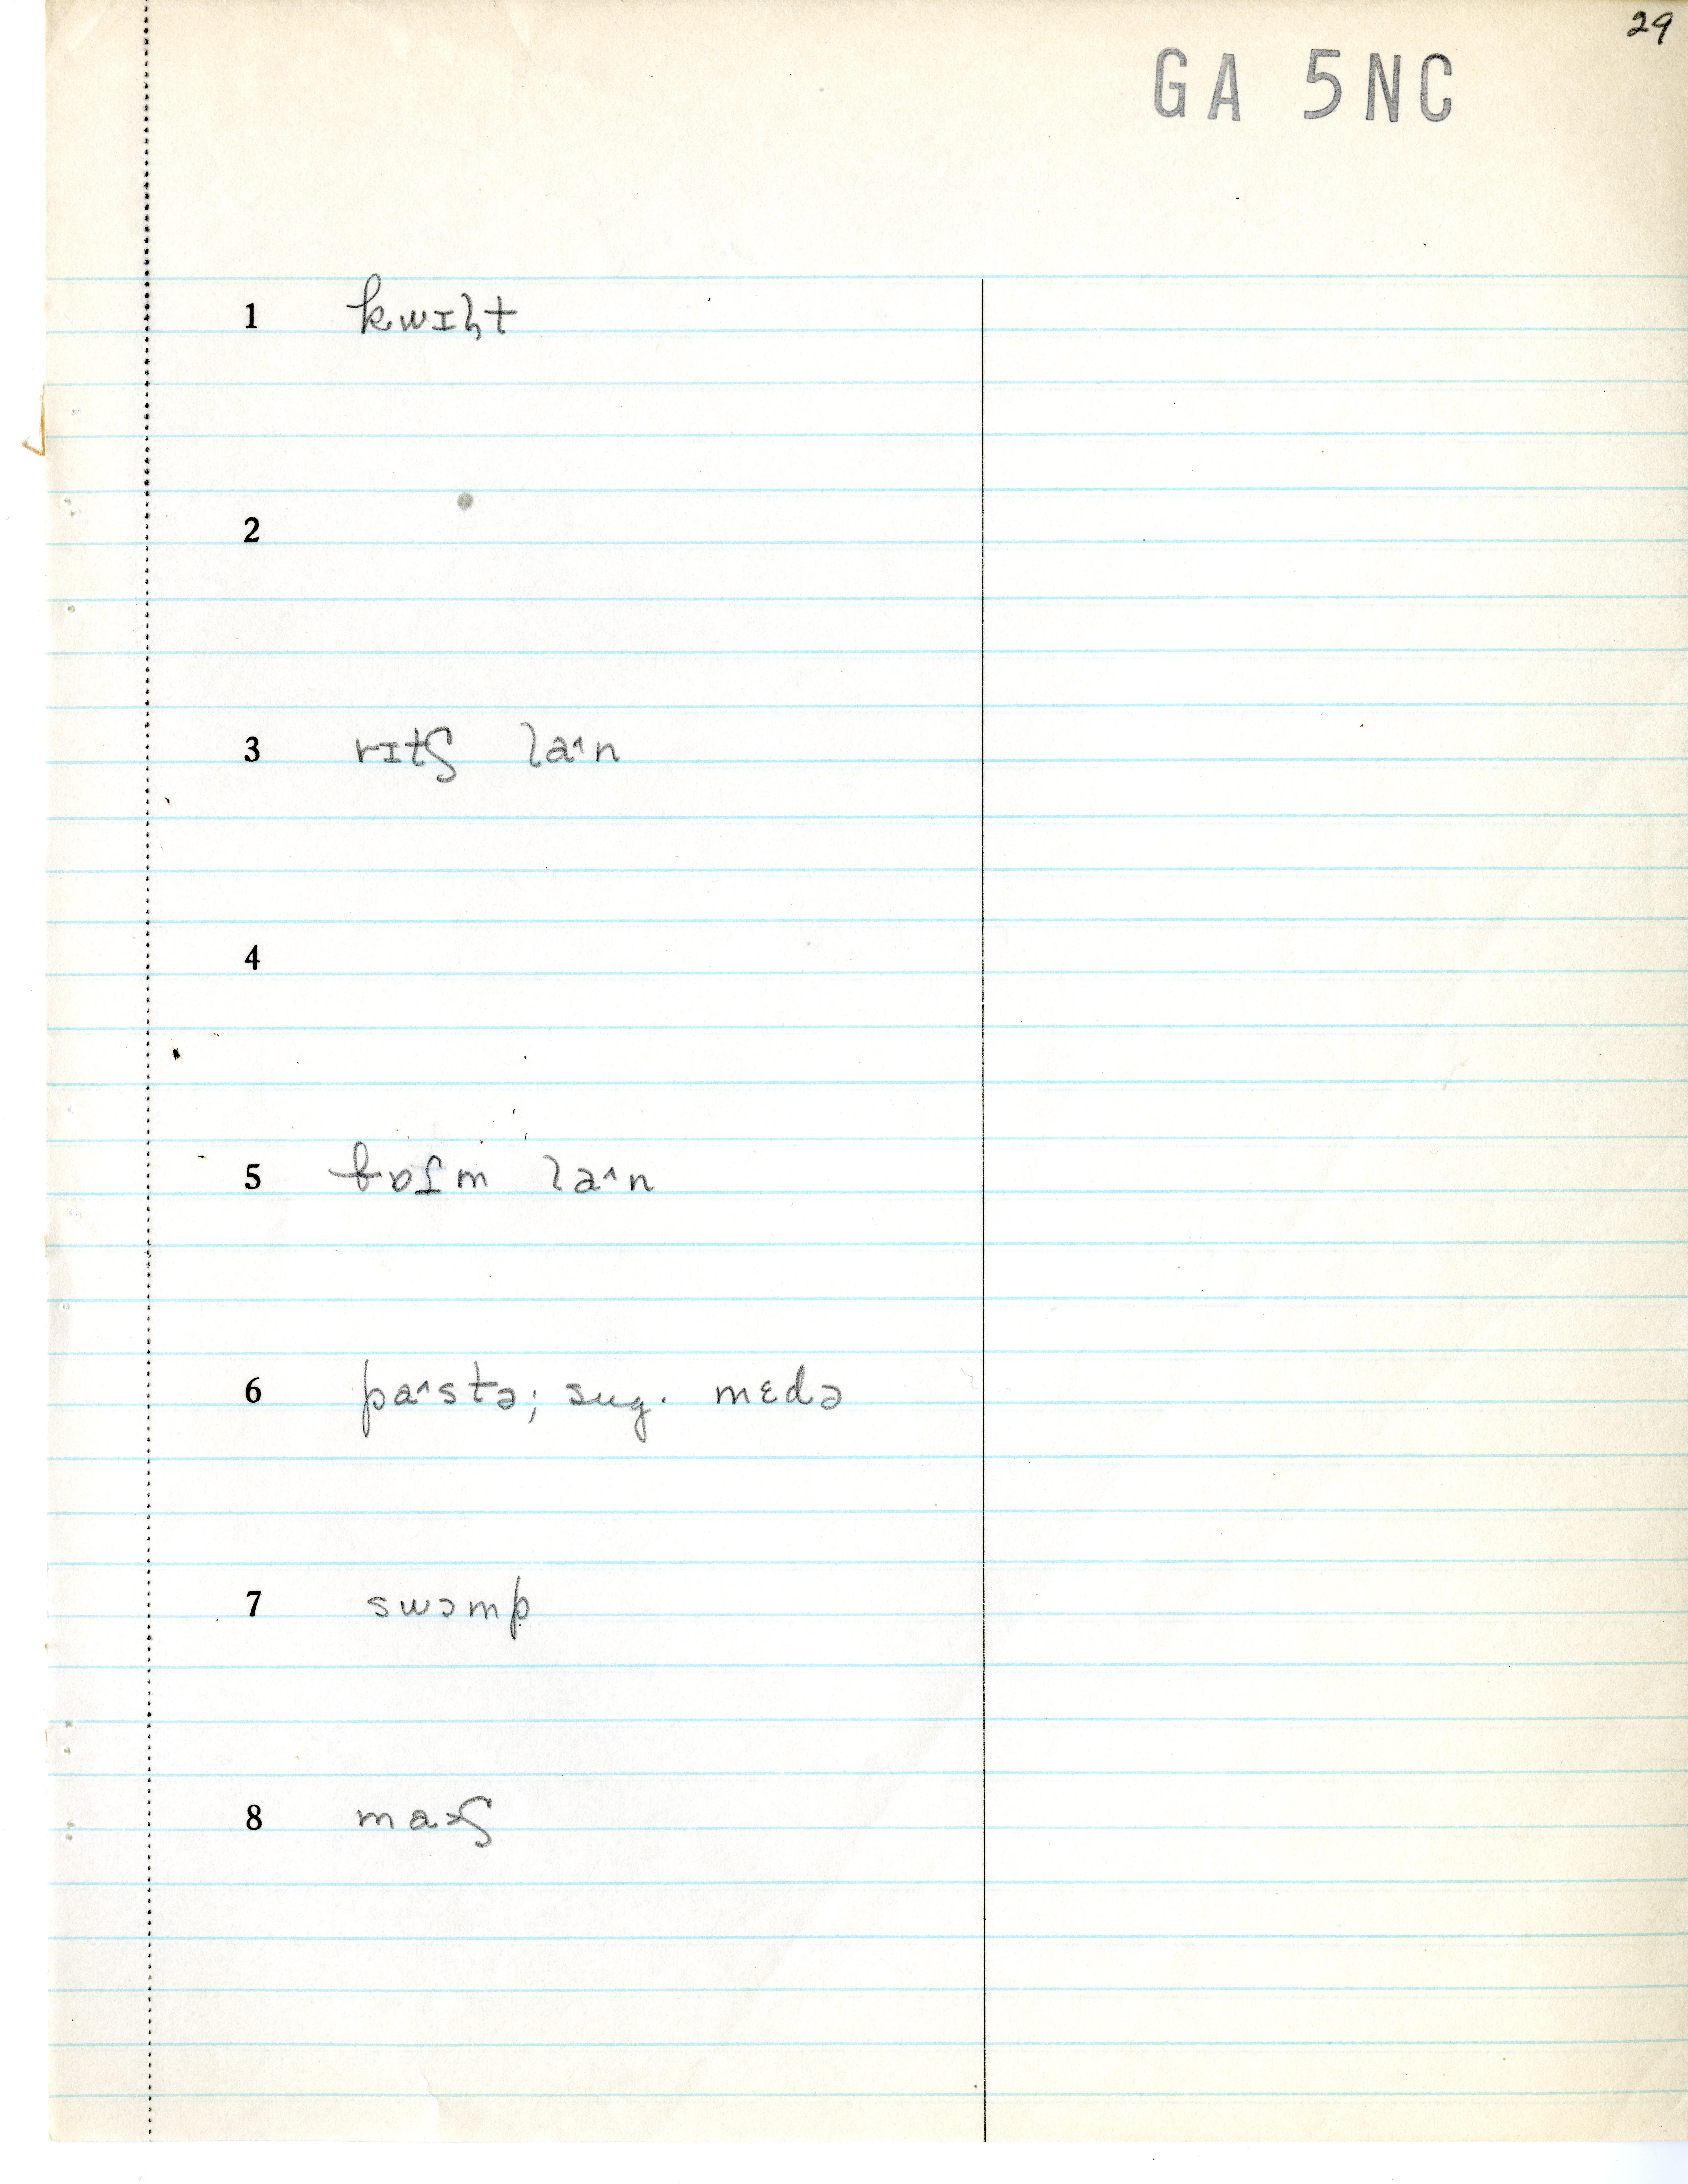 29
GA 5NC
1 kwɪɫt
2
3 rɪtʃ la˄n
4
5 bɒɫm la˄n
6 pa˄stə; sug. mɛdə
7 swɔmp
8 maːʃ